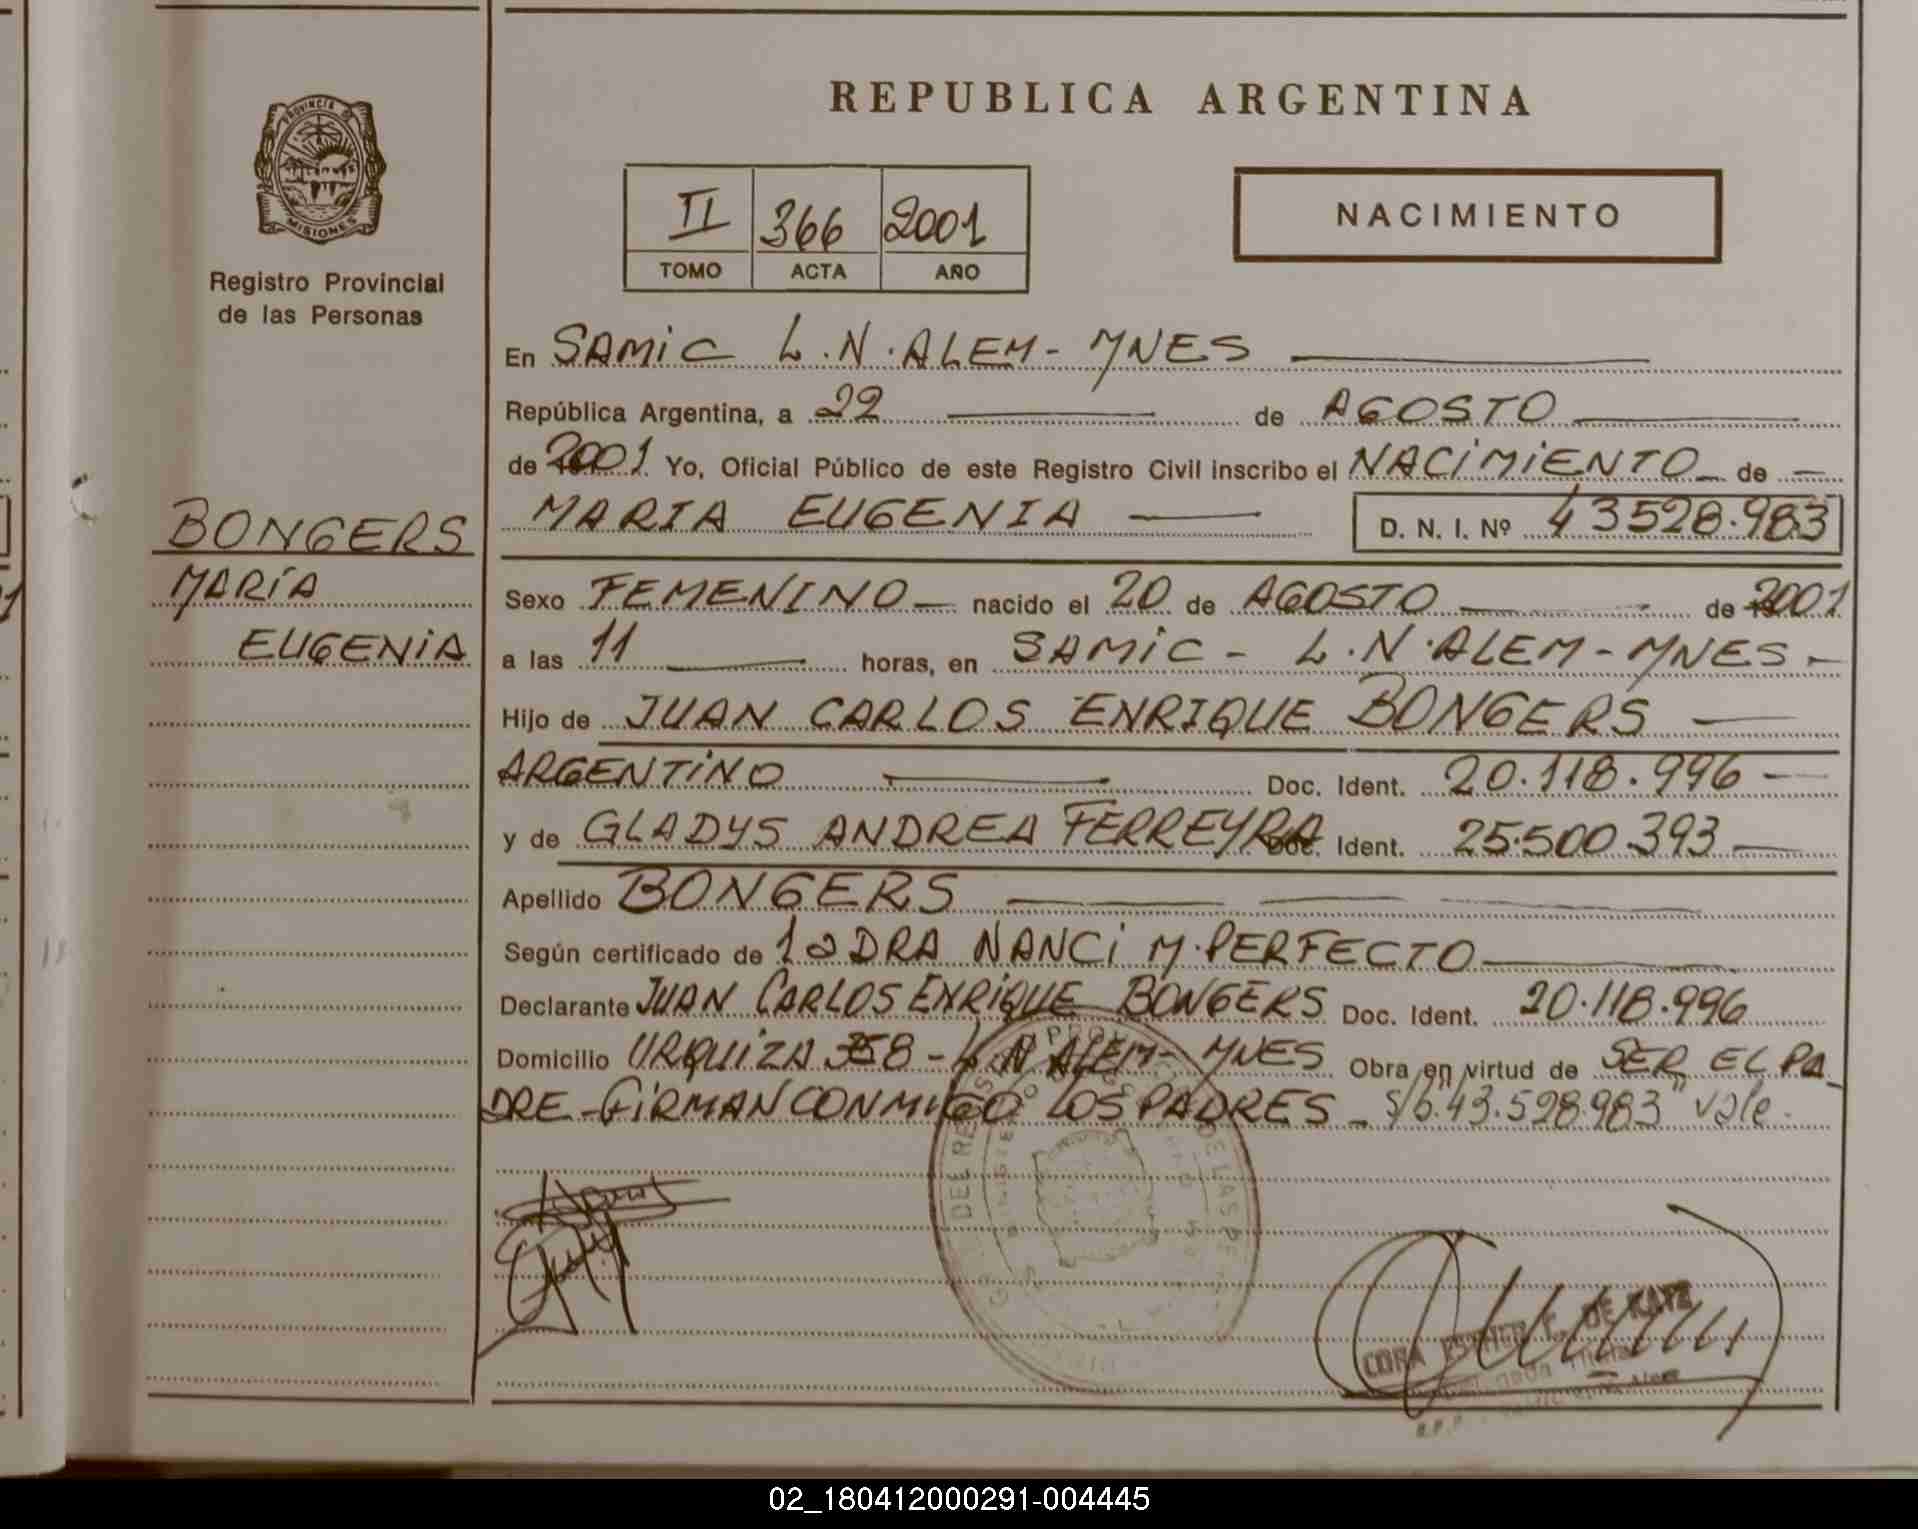 REPUBLICA ARGENTINA
PROVINCIA DE
MISIONES
Registro Provincial
de las Personas
II 366 2001
TOMO ACTA AÑO
NACIMIENTO
BONGERS
MARÍA
EUGENIA
En SAMIC L.N.ALEM - MNES
República Argentina, a 22 de AGOSTO
de 2001 Yo, Oficial Público de este Registro Civil inscribo el NACIMIENTO de
MARIA EUGENIA D. N. I. Nº 43528.983
Sexo FEMENINO nacido el 20 de AGOSTO de 2001
a las 11 horas, en SAMIC - L.N.ALEM - MNES -
Hijo de JUAN CARLOS ENRIQUE BONGERS
ARGENTINO Doc. Ident. 20.118.996
y de GLADYS ANDREA FERREYRA Doc. Ident. 25.500.393
Apellido BONGERS
Según certificado de DRA NANCI M. PERFECTO
Declarante JUAN CARLOS ENRIQUE BONGERS Doc. Ident. 20.118.996
Domicilio URQUIZA 358 - L N ALEM - MNES Obra en virtud de SER EL PA-
DRE - FIRMAN CONMIGO LOS PADRES - S/b. 43.528.983" vale.
CORA ESTHER F. DE KATZ
02_180412000291-004445